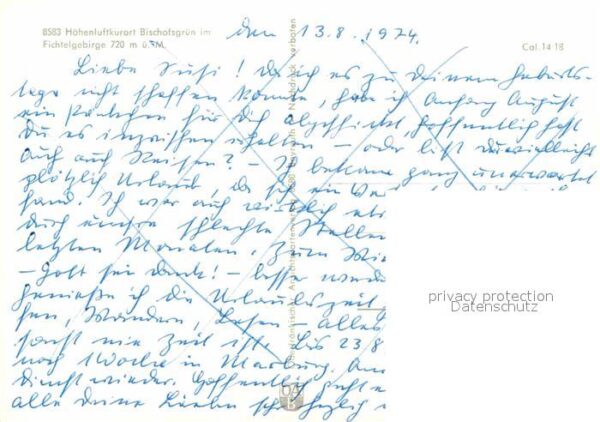 8583 Höhenluftkurort Bischofsgrün im
Fichtelgebirge 720 m ü. M.
den 13.8.1974.
Cal. 14 18
Liebe Susi! Da ich es zu Deinem Geburts-
tage nicht schaffen konnte, habe ich Anfang August
ein Päckchen für Dich abgeschickt, hoffentlich hast
Du es inzwischen erhalten – oder bist Du vielleicht
auch auf Reisen? – Ich bekam ganz unerwartet
plötzlich Urlaub, da sich ein
fand. Ich war auch wirklich
durch unsere schlechte
letzten Monaten. Zum
– Gott sei dank! – besser
genieße ich die Urlaubszeit
Wandern, Lesen – alles
was Zeit ist. Bis 23.8
noch 1 Woche in Marburg.
Dienst wieder. Hoffentlich geht
alle Deine Lieben sehr herzlich
privacy protection
Datenschutz